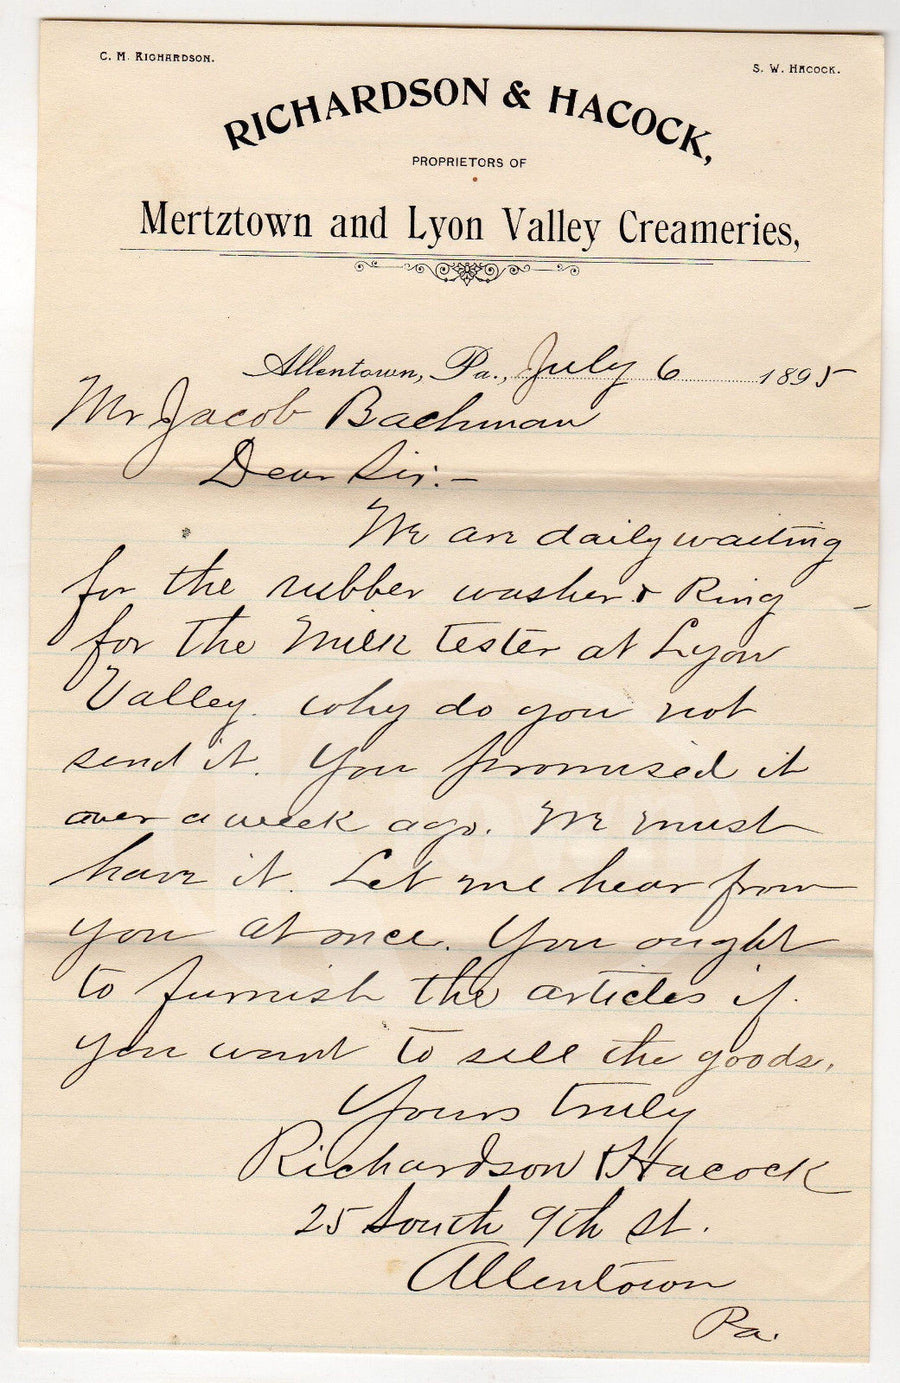 C. M. RICHARDSON.
S. W. HACOCK.
RICHARDSON & HACOCK,
PROPRIETORS OF
Mertztown and Lyon Valley Creameries,
Allentown, Pa., July 6 1895
Mr Jacob Bachman
Dear Sir:-
We are daily waiting
for the rubber washer & Ring -
for the Milk tester at Lyon
Valley. why do you not
send it. You promised it
over a week ago. We must
have it. Let me hear from
you at once. You ought
to furnish the articles if.
you want to sell the goods.
Yours truly
Richardson & Hacock
25 South 9th St.
Allentown
Pa.